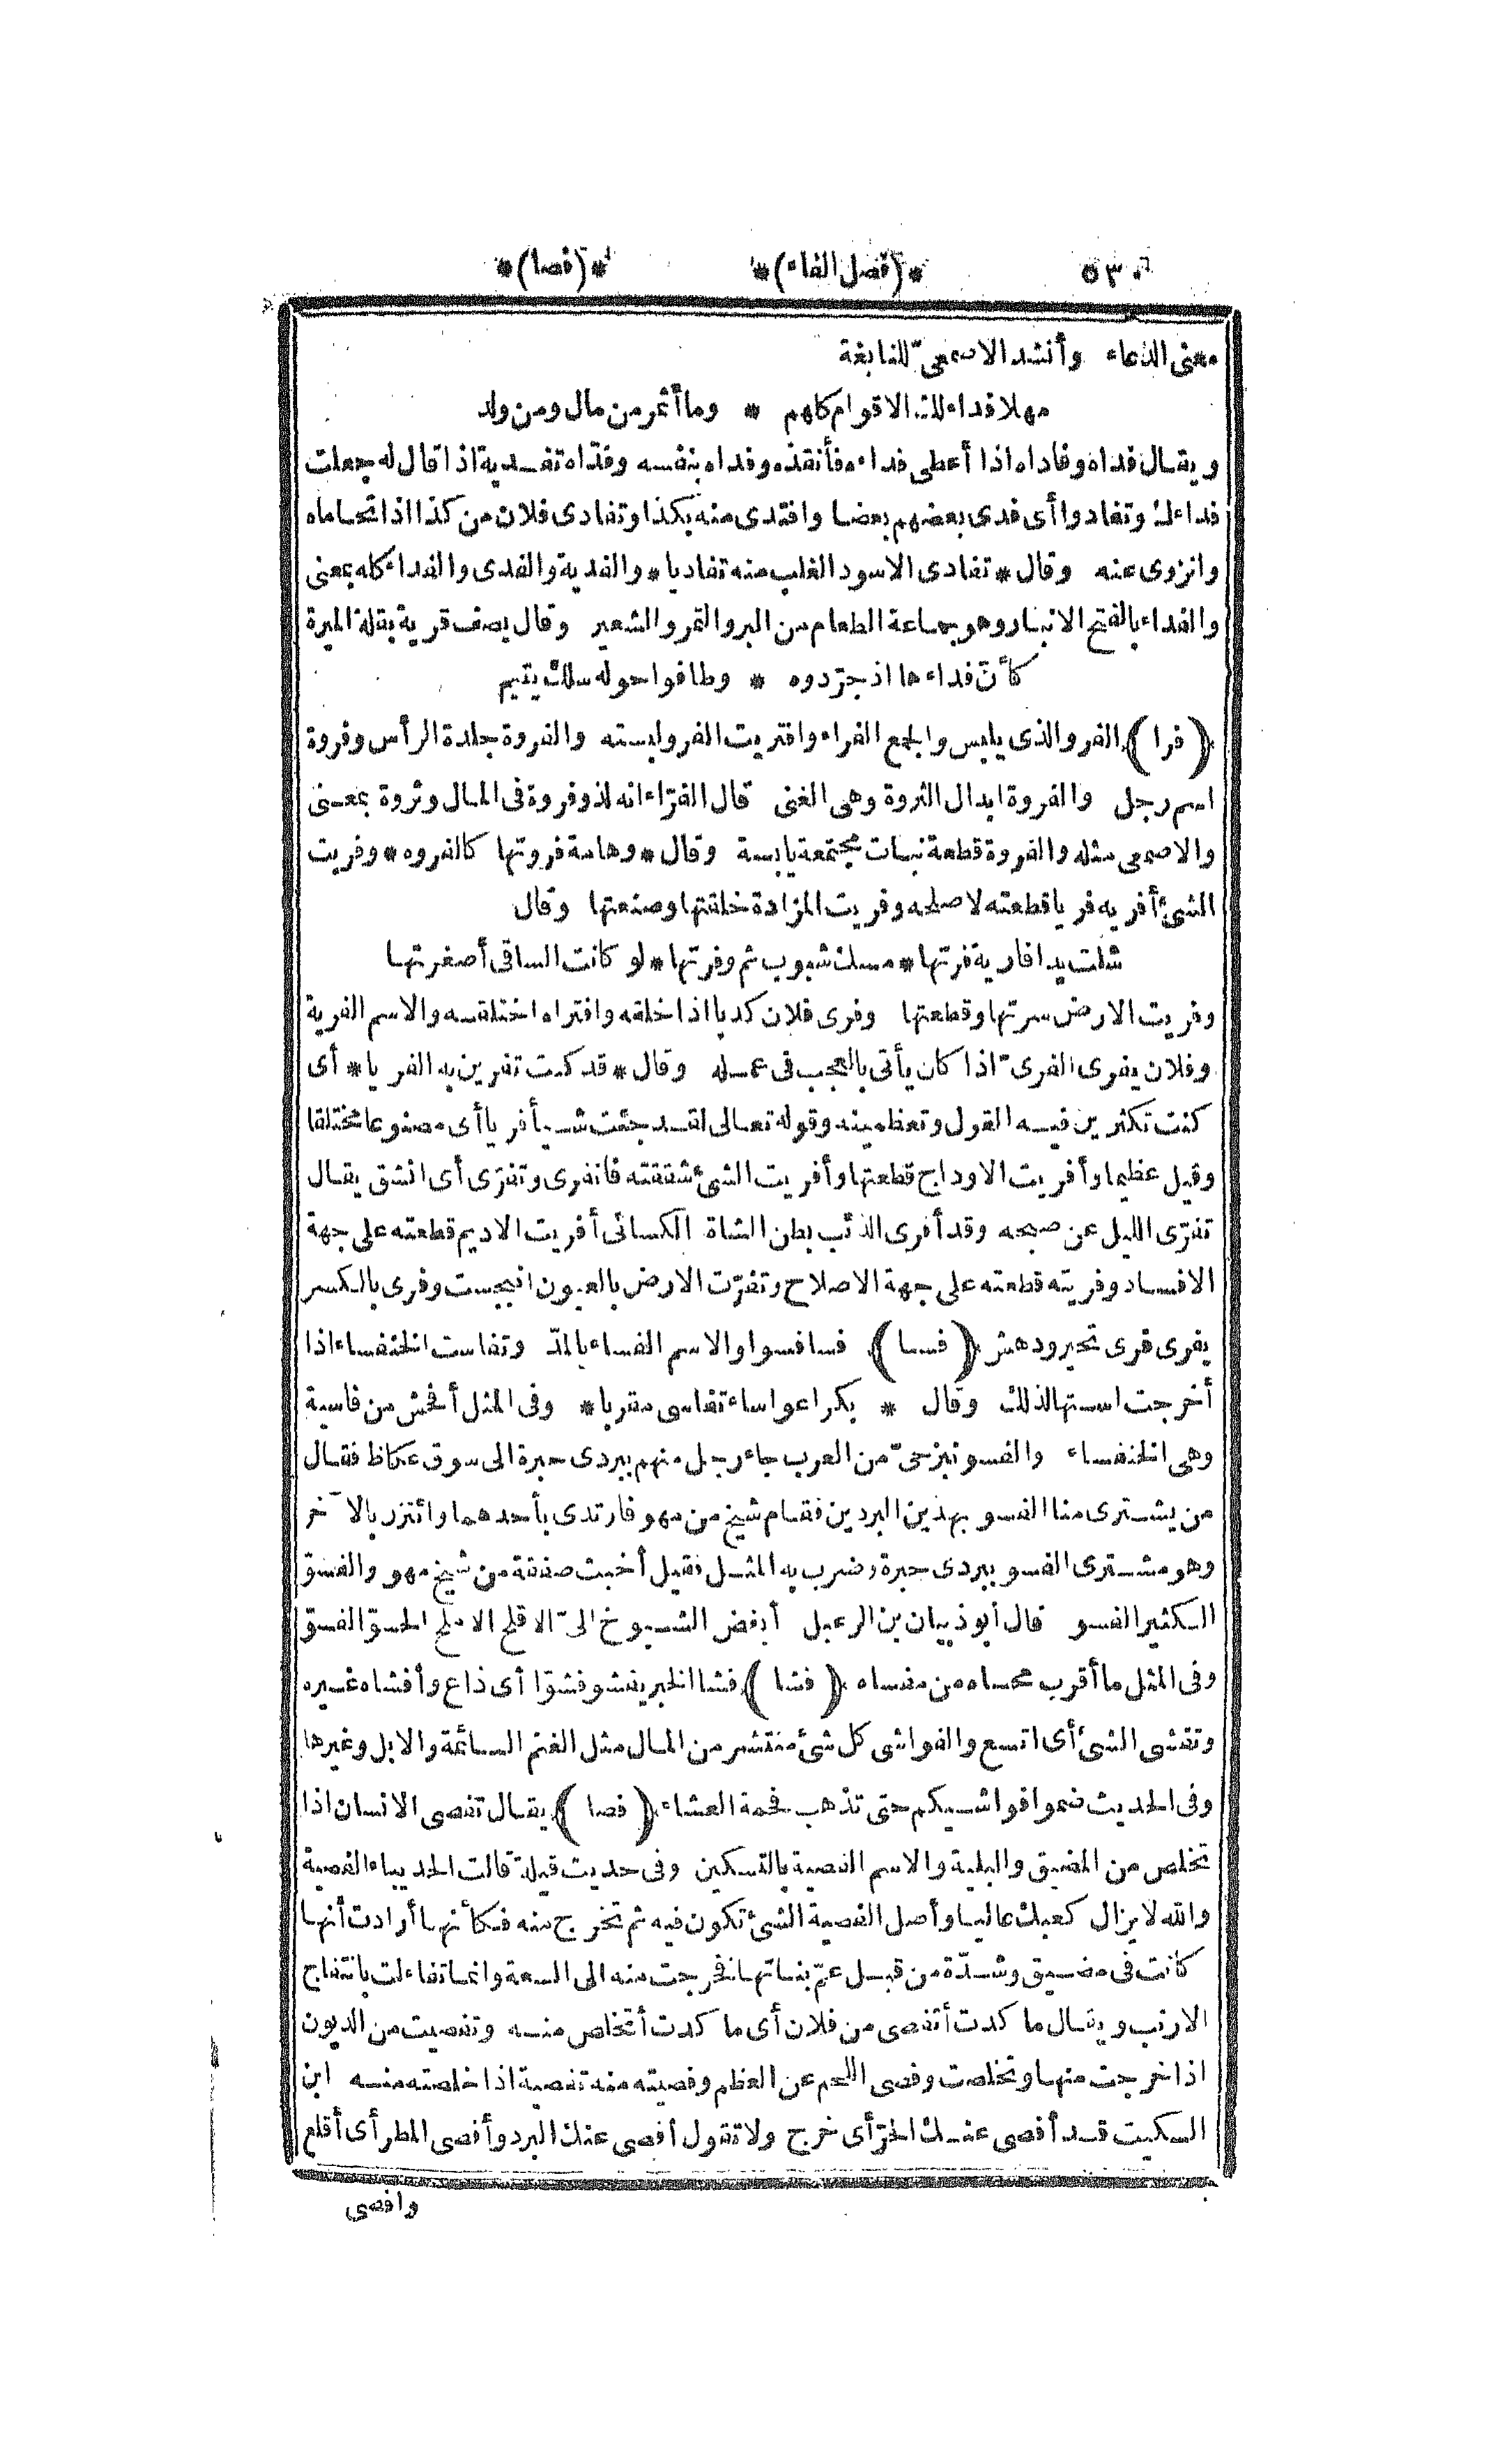 ٥٣٠ *(فصل الفاء)* *(فصا)*
معنى الدعاء وأنشد الاصمعىّ للنابغة
مهلا فداء لك الاقوام كلهم * وما أثمر من مال ومن ولد
ويقال فداه وفاداه اذا أعطى فداءه فأنقذه وفداه بنفسه وفدّاه تفدية اذا قال له جعلت
فداءك وتفادوا أى فدى بعضهم بعضا وافتدى منه بكذا وتفادى فلان من كذا اذا تحاماه
وانزوى عنه وقال * تفادى الاسود الغلب منه تفاديا * والفدية والفدى والفداء كله بمعنى
والفداء بالفتح الانبار وهو جماعة الطعام من البر والتمر والشعير وقال يصف قرية بقلة الميرة
كأنّ فداءها اذ جرّدوه * وطافوا حوله سلك يتيم
(فرا) الفرو الذى يلبس والجمع الفراء وافتريت الفرو لبسته والفروة جلدة الرأس وفروة
اسم رجل والفروة ابدال الثروة وهى الغنى قال الفرّاء انه لذو فروة فى المال وثروة بمعنى
والاصمعى مثله والفروة قطعة نبات مجتمعة يابسة وقال * وهامة فروتها كالفروه * وفريت
الشئ أفريه فريا قطعته لاصلحه وفريت المزادة خلقتها وصنعتها وقال
شلت يدا فارية فرتها * مسك شبوب ثم وفرتها * لو كانت الساقى أصغرتها
وفريت الارض سرتها وقطعتها وفرى فلان كذبا اذا خلقه وافتراه اختلقه والاسم الفرية
وفلان يفرى الفرىّ اذا كان يأتى بالعجب فى عمله وقال * قد كنت تفرين به الفريا * أى
كنت تكثرين فيه القول وتعظمينه وقوله تعالى لقد جئت شيأ فريا أى مصنوعا مختلقا
وقيل عظيما وأفريت الاوداج قطعتها وأفريت الشئ شققته فانفرى وتفرّى أى انشق يقال
تفرّى الليل عن صبحه وقد أفرى الذئب بطن الشاة الكسائى أفريت الاديم قطعته على جهة
الافساد وفريته قطعته على جهة الاصلاح وتفرّت الارض بالعيون انبجست وفرى بالكسر
يفرى فرى تحير ودهش (فسا) فسا فسوا والاسم الفساء بالمدّ وتفاست الخنفساء اذا
أخرجت استها لذلك وقال * بكرا عواساء تفاسى مقربا * وفى المثل أفحش من فاسية
وهى الخنفساء والفسو نبز حىّ من العرب جاء رجل منهم ببردى حبرة الى سوق عكاظ فقال
من يشترى منا الفسو بهذين البردين فقام شيخ من مهو فارتدى بأحدهما وائتزر بالآخر
وهو مشترى الفسو ببردى حبرة وضرب به المثل فقيل أخيب صفقة من شيخ مهو والفسوّ
الكثير الفسو قال أبو ذبيان بن الرعبل أبغض الشيوخ الىّ الاقلح الاملح الحسوّ الفسوّ
وفى المثل ما أقرب محساه من مفساه (فشا) فشا الخبر يفشو فشوّا أى ذاع وأفشاه غيره
وتفشى الشئ أى اتسع والفواشى كل شئ منتشر من المال مثل الغنم السائمة والابل وغيرها
وفى الحديث ضموا فواشيكم حتى تذهب فحمة العشاء (فصا) يقال تفصى الانسان اذا
تخلص من المضيق والبلية والاسم الفصية بالتسكين وفى حديث قيلة قالت الحديباء الفصية
والله لا يزال كعبك عاليا وأصل الفصية الشئ تكون فيه ثم تخرج منه فكأنها أرادت أنها
كانت فى مضيق وشدّة من قبل عمّ بناتها فخرجت منه الى السعة وانما تفاءلت بانتفاج
الارنب ويقال ما كدت أتفصى من فلان أى ما كدت أتخلص منه وتفصيت من الديون
اذا خرجت منها وتخلصت وفصى اللحم عن العظم وفصيته منه تفصية اذا خلصته منه ابن
السكيت قد أفصى عنك الحرّ أى خرج ولا تقول أفصى عنك البرد وأفصى المطر أى أقلع
وافصى